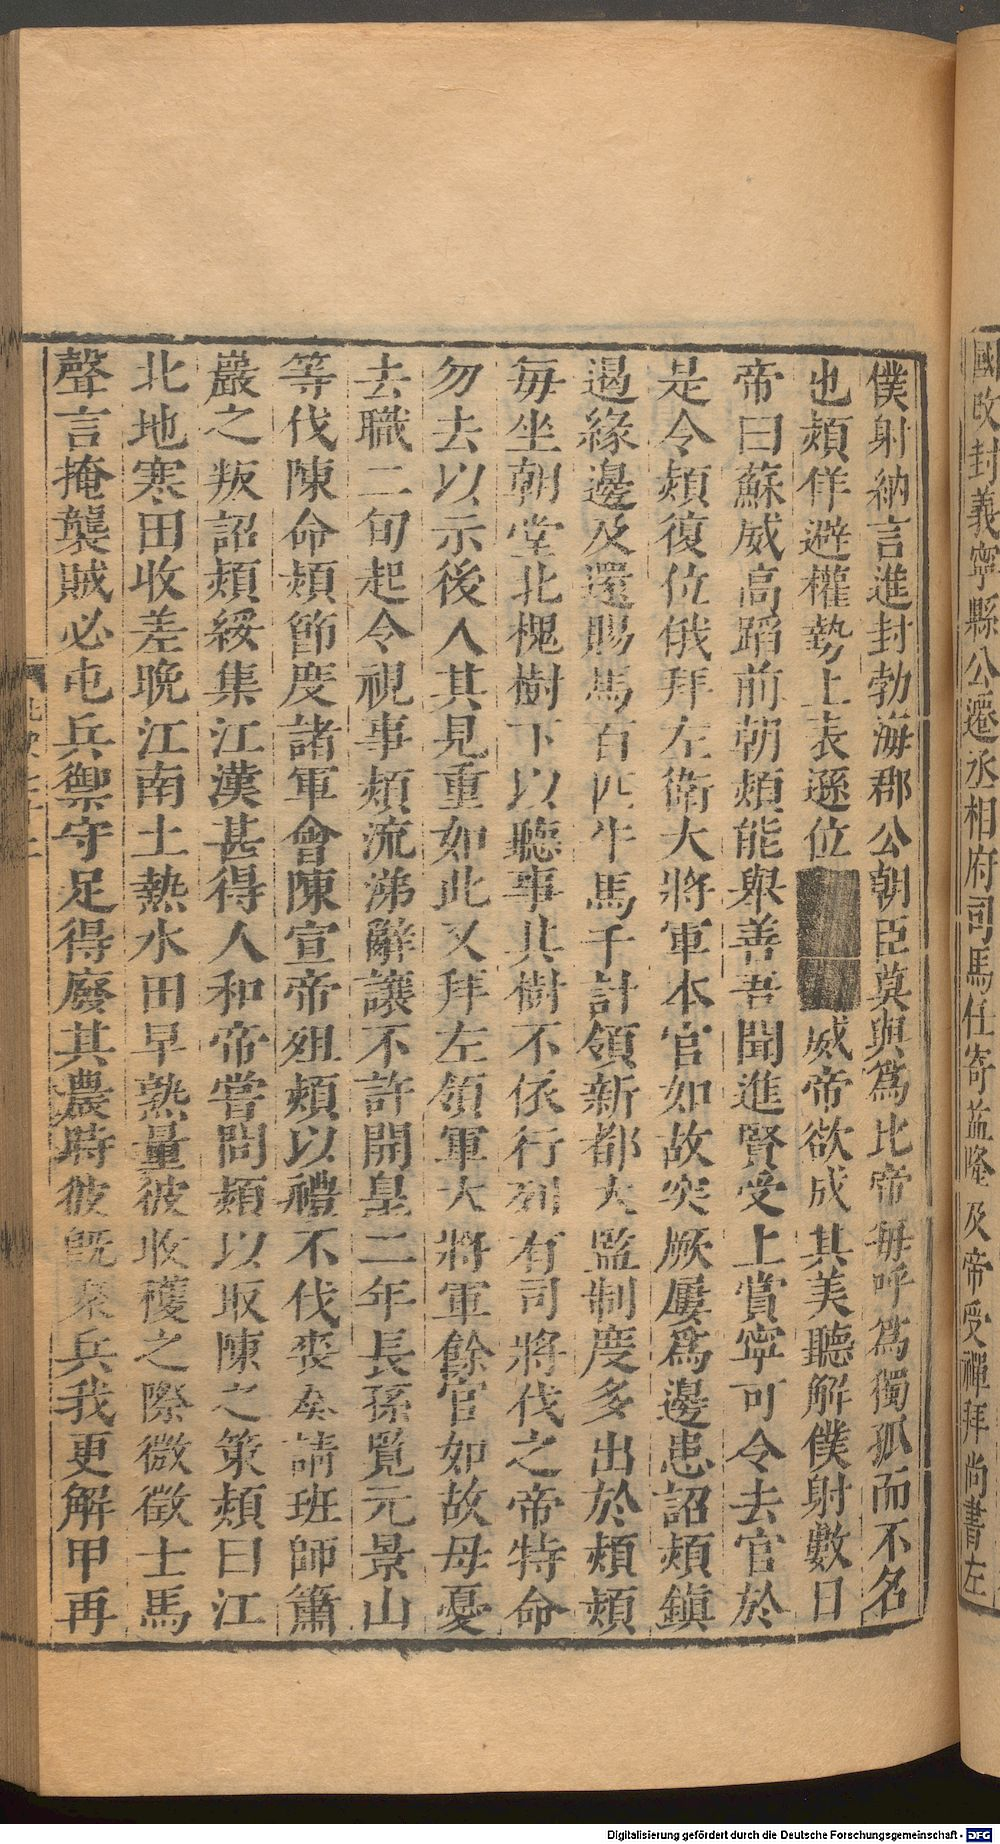 國改封義寧縣公遷丞相府司馬任寄益隆及帝受禪拜尚書左
僕射納言進封勃海郡公朝臣莫與爲比帝每呼爲獨孤而不名
也熲佯避權勢上表遜位威帝欲成其美聽解僕射數日
帝曰蘇威高蹈前朝熲能舉善吾聞進賢受上賞寧可令去官於
是令熲復位俄拜左衛大將軍本官如故突厥屢爲邊患詔熲鎮
遏緣邊及還賜馬百匹牛馬千計領新都大監制度多出於熲熲
每坐朝堂北槐樹下以聽事其樹不依行列有司將伐之帝特命
勿去以示後人其見重如此又拜左領軍大將軍餘官如故母憂
去職二旬起令視事熲流涕辭讓不許開皇二年長孫覽元景山
等伐陳命熲節度諸軍會陳宣帝殂熲以禮不伐喪奏請班師蕭
巖之叛詔熲綏集江漢甚得人和帝嘗問熲以取陳之策熲曰江
北地寒田收差晚江南土熱水田早熟量彼收穫之際微徵士馬
聲言掩襲賊必屯兵禦守足得廢其農時彼旣聚兵我更解甲再
Digitalisierung gefördert durch die Deutsche Forschungsgemeinschaft - DFG